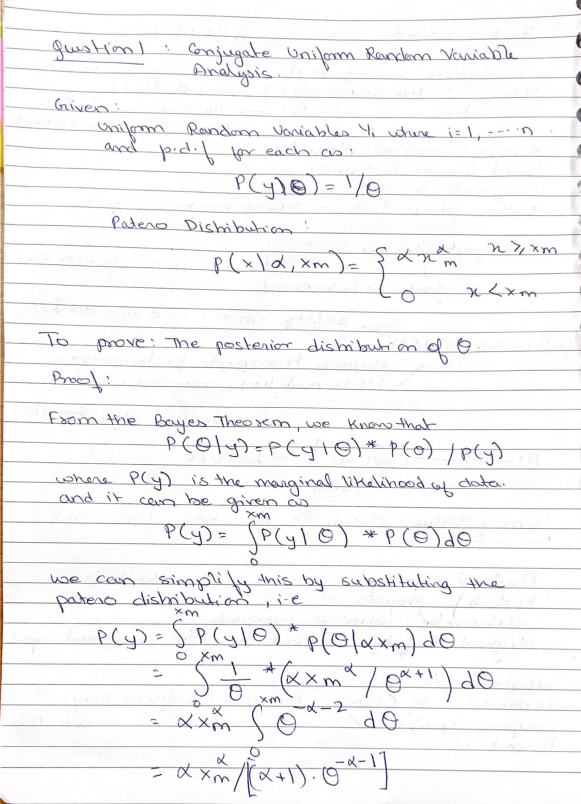 Question 1 : Conjugate Uniform Random Variable
Analysis.
Given:
Uniform Random Variables Yi where i=1, ----- n
and p.d.f for each as:
P(y|θ) = 1/θ
Patero Distribution:
P(x|α, xm) = { α x^α_m   x ≥ xm
0   x < xm
To prove: The posterior distribution of θ.
Proof:
From the Bayes Theorem, we know that
P(θ|y) = P(y|θ) * P(θ) / P(y)
where P(y) is the marginal likelihood of data.
and it can be given as
P(y) = ∫_0^xm P(y|θ) * P(θ) dθ
we can simplify this by substituting the
patero distribution, i.e
P(y) = ∫_0^xm P(y|θ) * P(θ|αxm) dθ
= ∫_0^xm 1/θ * (αxm^α / θ^α+1) dθ
= αxm^α ∫_0^xm θ^-α-2 dθ
= αxm^α / [(α+1) . θ^-α-1]